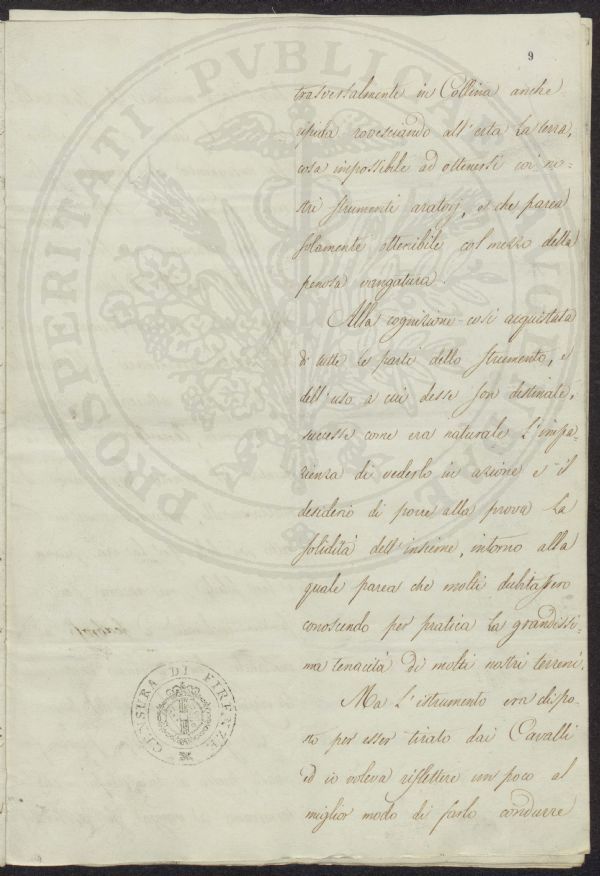 9
trasversalmente in Collina anche
ripida rovesciando all'erta la terra,
cosa impossibile ad ottenersi coi no-
stri strumenti aratorj, e che parea
solamente ottenibile col mezzo della
penosa vangatura.
Alla cognizione così acquistata
di tutte le parti dello strumento, e
dell'uso a cui desse son destinate,
successe come era naturale l'impa-
zienza di vederlo in azione e il
desiderio di porre alla prova la
solidità dell'insieme, intorno alla
quale parea che molti dubitassero
conoscendo per pratica la grandissi-
ma tenacità di molti nostri terreni.
Ma l'istrumento era dispo-
sto per esser tirato dai Cavalli
ed io voleva riflettere un poco al
miglior modo di farlo condurre
PROSPERITATI PVBLICAE
CENSURA DI FIRENZE